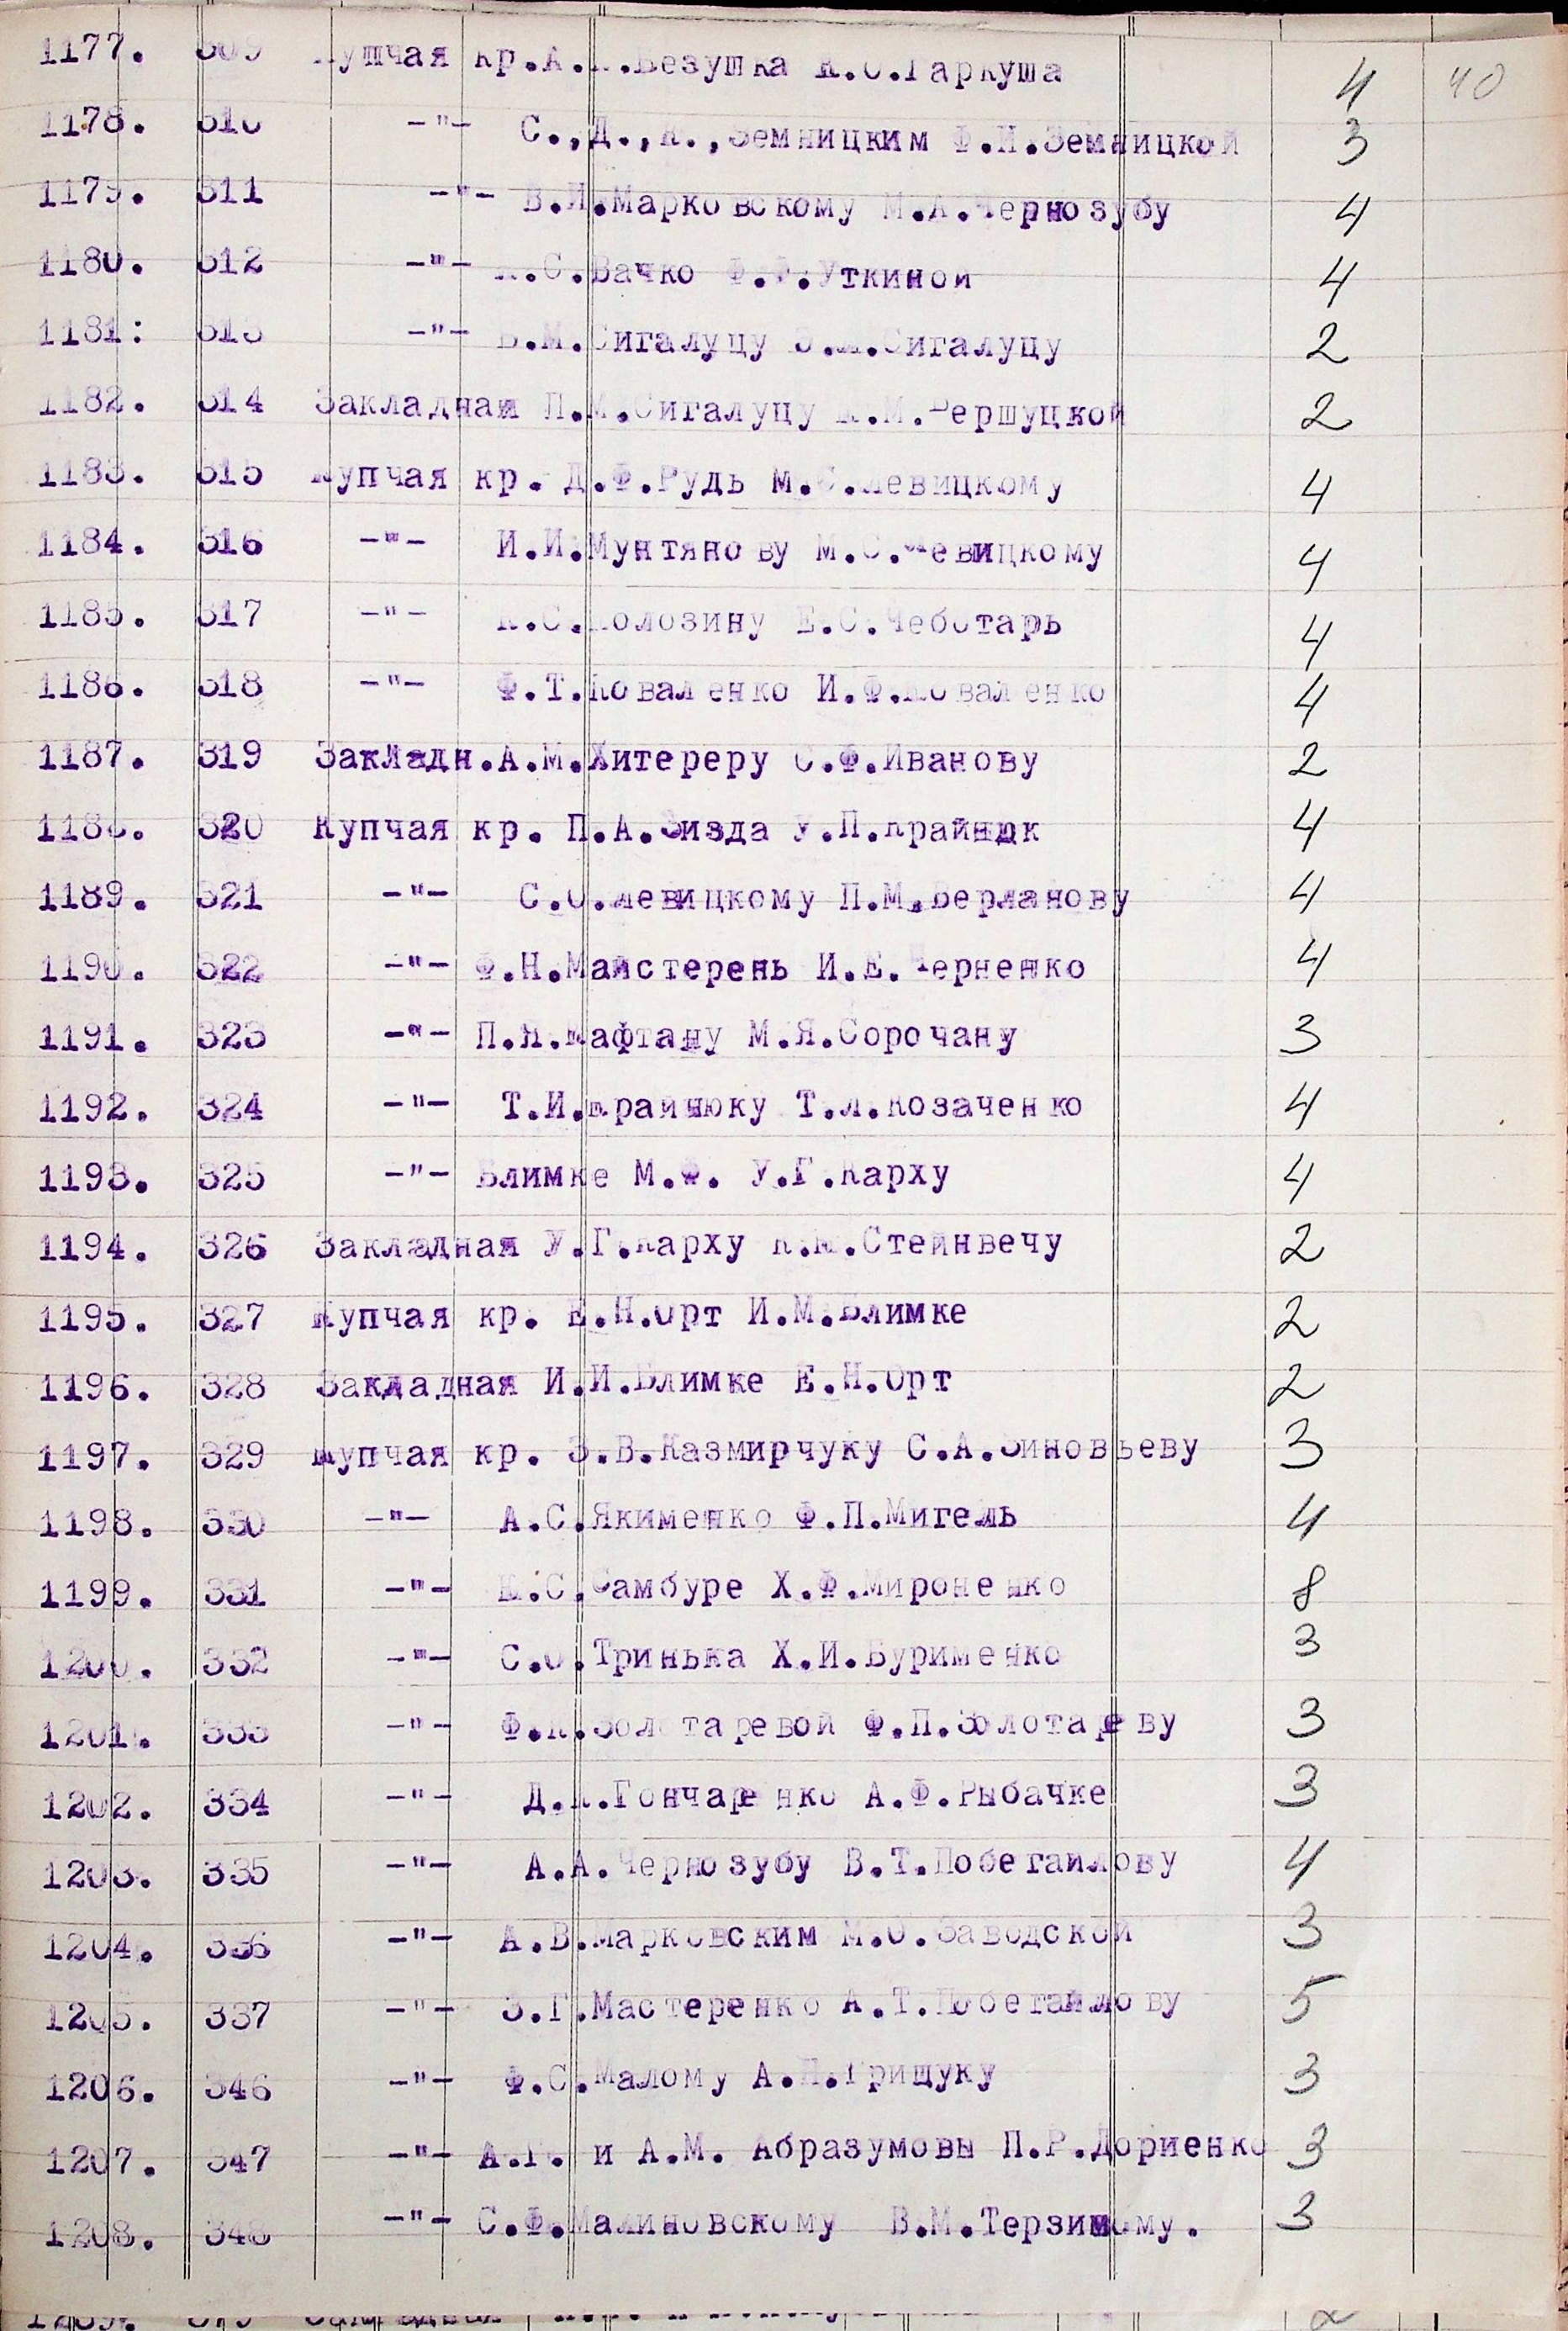 1177. 309 Купчая кр.А. .Безушка К.С.Гаркуша 4 40
1178. 310 -"- С.,Д.,К.,Земницким Ф.И.Земницкой 3
1179. 311 -"- В.И.Марковскому М.А.Чернозубу 4
1180. 312 -"- .С.Бачко Ф.Ф.Уткиной 4
1181: 313 -"- .М.Сигалуцу .Сигалуцу 2
1182. 314 Закладная П.М.Сигалуцу .М.Вершуцкой 2
1183. 315 Купчая кр. Д.Ф.Рудь М.С.Левицкому 4
1184. 316 -"- И.И.Мунтянову М.С.Левицкому 4
1185. 317 -"- К.С.Колозину Е.С.Чеботарь 4
1186. 318 -"- Ф.Т.Коваленко И.Ф.Коваленко 4
1187. 319 Закладн.А.М.Хитереру С.Ф.Иванову 2
1188. 320 Купчая кр. П.А.Зизда У.П.Крайнюк 4
1189. 321 -"- С.С.Левицкому П.М.Берланову 4
1190. 322 -"- Ф.Н.Майстерень И.Е.Черненко 4
1191. 323 -"- П.Я.Кафтану М.Я.Сорочану 3
1192. 324 -"- Т.И.Крайнюку Т.Л.Козаченко 4
1193. 325 -"- Блимке М.Ф. У.Г.Карху 4
1194. 326 Закладная У.Г.Карху К.К.Стейнвечу 2
1195. 327 Купчая кр. Е.Н.Орт И.М.Блимке 2
1196. 328 Закладная И.И.Блимке Е.Н.Орт 2
1197. 329 Купчая кр. З.В.Казмирчуку С.А.Зиновьеву 3
1198. 330 -"- А.С.Якименко Ф.П.Мигель 4
1199. 331 -"- К.С.Самбуре Х.Ф.Мироненко 8
1200. 332 -"- С.О.Тринька Х.И.Бурименко 3
1201. 333 -"- Ф.К.Золотаревой Ф.П.Золотареву 3
1202. 334 -"- Д.К.Гончаренко А.Ф.Рыбачке 3
1203. 335 -"- А.А.Чернозубу В.Т.Побегайлову 4
1204. 336 -"- А.В.Марковским М.О.Заводской 3
1205. 337 -"- З.Г.Мастеренко А.Т.Побегайлову 5
1206. 346 -"- Ф.С.Малому А.П.Грищуку 3
1207. 347 -"- А.Г. и А.М. Абразумовы П.Р.Дориенко 3
1208. 348 -"- С.Ф.Малиновскому В.М.Терзийому. 3